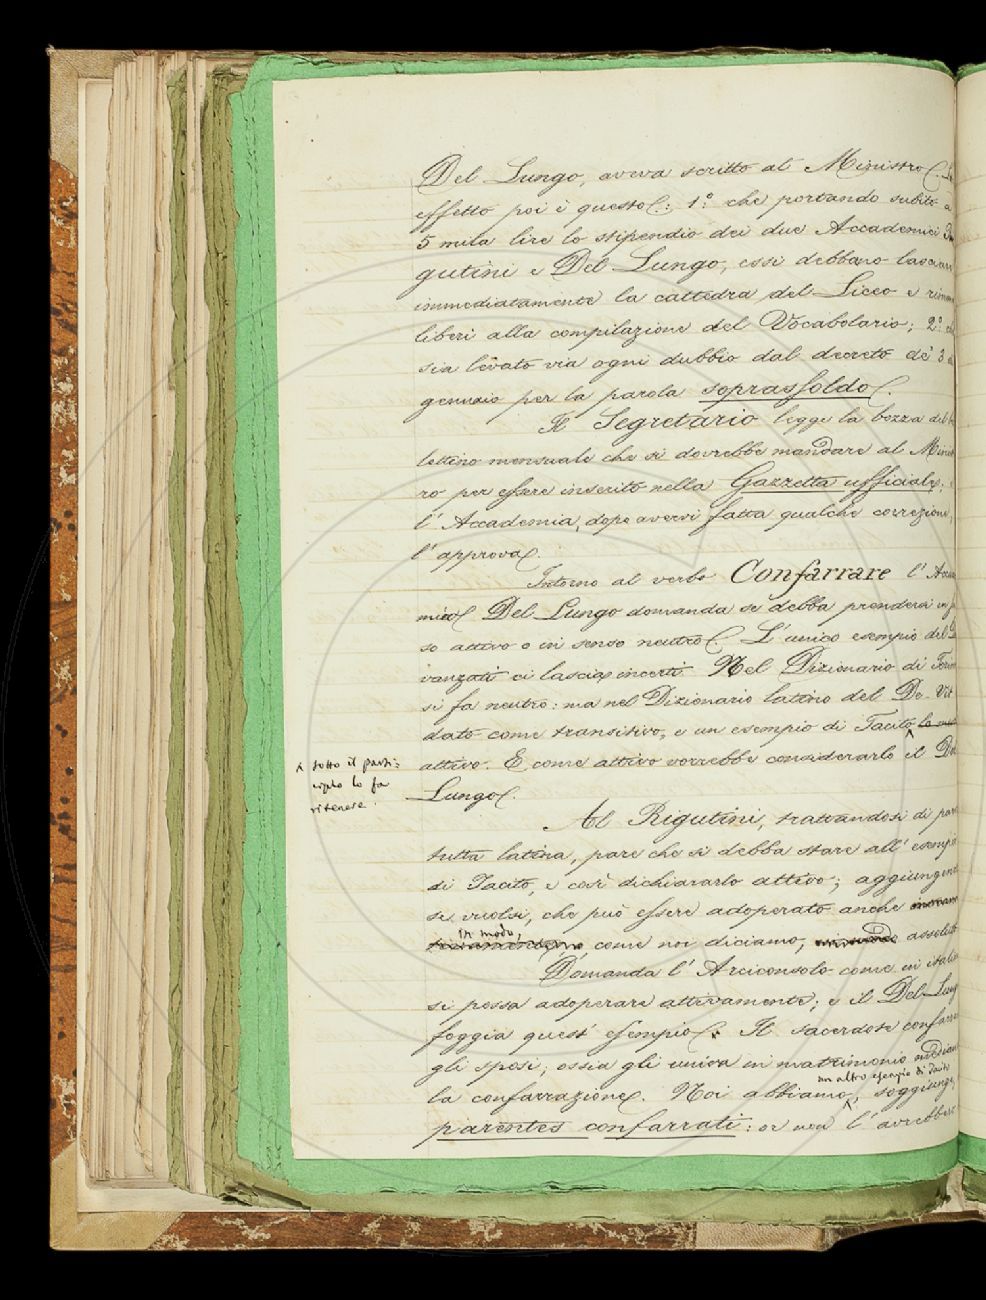 Del Lungo, aveva scritto al Ministro.
effetto poi è questo: 1.° che portando subito a
5 mila lire lo stipendio dei due Accademici
gutini e Del Lungo, essi debbano lasciare
immediatamente la cattedra del Liceo e
liberi alla compilazione del Vocabolario; 2.°
sia levato via ogni dubbio dal decreto de' 3
gennaio per la parola soprassoldo.
Il Segretario legge la bozza del
lettino mensuale che si dovrebbe mandare al Minist
ro per essere inserito nella Gazzetta ufficiale;
l'Accademia, dopo avervi fatta qualche correzione,
l'approva.
Intorno al verbo Confarrare l'Acca
mico Del Lungo domanda se debba prendersi in
so attivo o in senso neutro. L'unico esempio del
vanzati ci lascia incerti. Nel Dizionario di
si fa neutro: ma nel Dizionario latino del De-Vit
dato come transitivo, e un esempio di Tacito
^ tutto il parti-
cipio lo fa
ritenere.
attivo. E come attivo vorrebbe considerarlo il Del
Lungo.
Al Rigutini, trattandosi di paro
tutta latina, pare che si debba stare all'esempio
di Tacito, e così dichiararlo attivo; aggiungendo
se vuolsi, che può essere adoperato anche
in modo,
come noi diciamo, assoluto
Domanda l'Arciconsolo come in italiano
si possa adoperare attivamente; e il Del Lungo
foggia quest'esempio: Il sacerdote confarra
gli sposi, ossia gli unisca in matrimonio mediante
un altro esempio di Tacito
la confarrazione. Noi abbiamo, soggiunge,
parentes confarrati: or non l'avrebbe